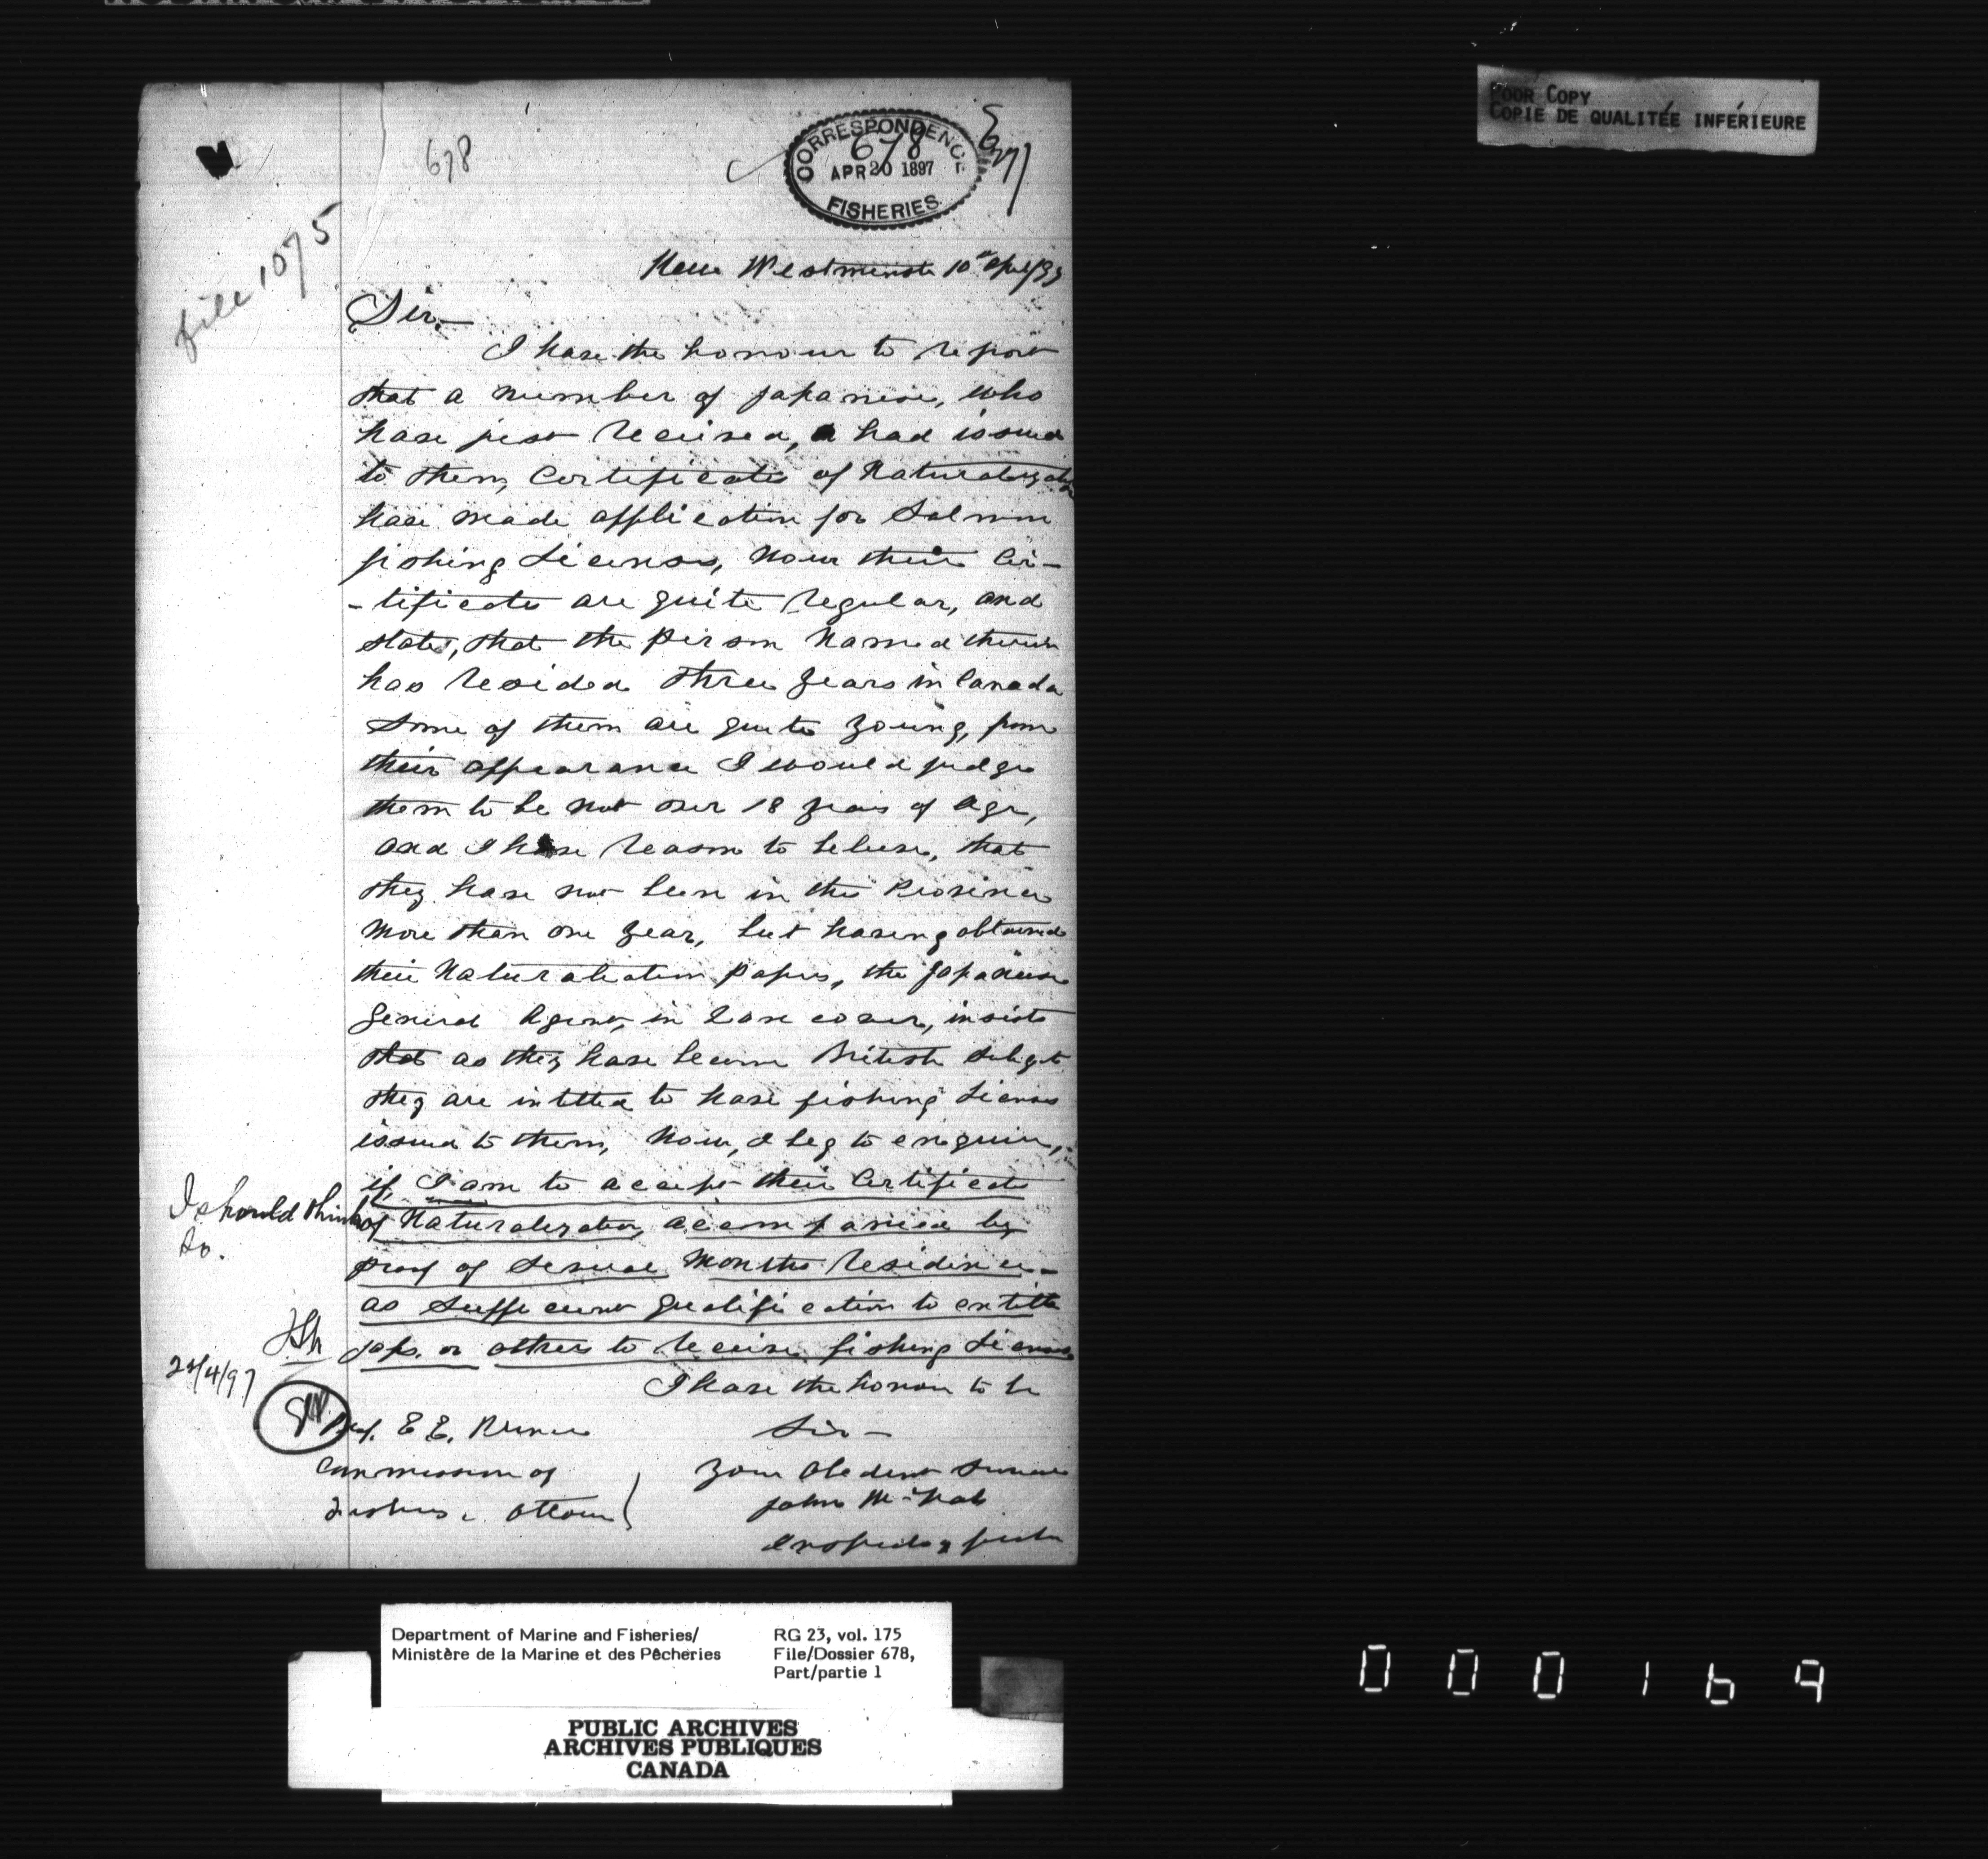 POOR COPY
COPIE DE QUALITÉE INFÉRIEURE
678
CORRESPONDENCE
678
APR 20 1897
FISHERIES
file 1075
New Westminster 10th April/97
Sir,—
I have the honour to report
that a number of Japanese, who
have just received, & had issued
to them, Certificates of Naturalization
have made application for Salmon
fishing Licenses, Now their Cer-
-tificates are quite regular, and
states, that the person named therein
has resided three years in Canada
Some of them are quite young, from
their appearance I would judge
them to be not over 18 years of age,
and I have reason to believe, that
they have not been in the Province
more than one year, but having obtained
their Naturalization papers, the Japanese
General Agent, in Vancouver, insists
that as they have become British Subjects
they are intitled to have fishing Licenses
issued to them, Now, I beg to enquire,
if I am to accept their Certificate
of Naturalization, accompanied by
proof of several months residence
as sufficient qualification to entitle
Japs. or others to receive fishing Licenses
I should think
so.
21/4/97
I have the honour to be
Sir —
Your Obedient Servant
John McNab
Inspector of Fisheries
Prof. E. E. Prince
Commissioner of
Fisheries, Ottawa
Department of Marine and Fisheries/
Ministère de la Marine et des Pêcheries
RG 23, vol. 175
File/Dossier 678,
Part/partie 1
PUBLIC ARCHIVES
ARCHIVES PUBLIQUES
CANADA
000169